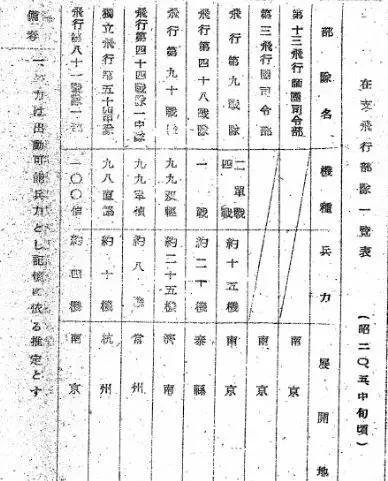 在支飛行部隊一覧表 (昭二〇、五中旬頃)
部隊名 機種 兵力 展開地
第十三飛行師團司令部 南京
第三飛行團司令部 南京
飛行第九戰隊 二單戰 四戰 約十五機 南京
飛行第四十八戰隊 一戰 約二十機 泰縣
飛行第九十戰隊 九九双輕 約二十五機 濟南
飛行第四十四戰隊一中隊 九九軍偵 約八機 常州
獨立飛行第五十四中隊 九八直協 約十機 杭州
飛行第八十一戰隊一部 一〇〇偵 約四機 南京
備考 一、兵力は出動可能兵力とし記憶に依る推定とす